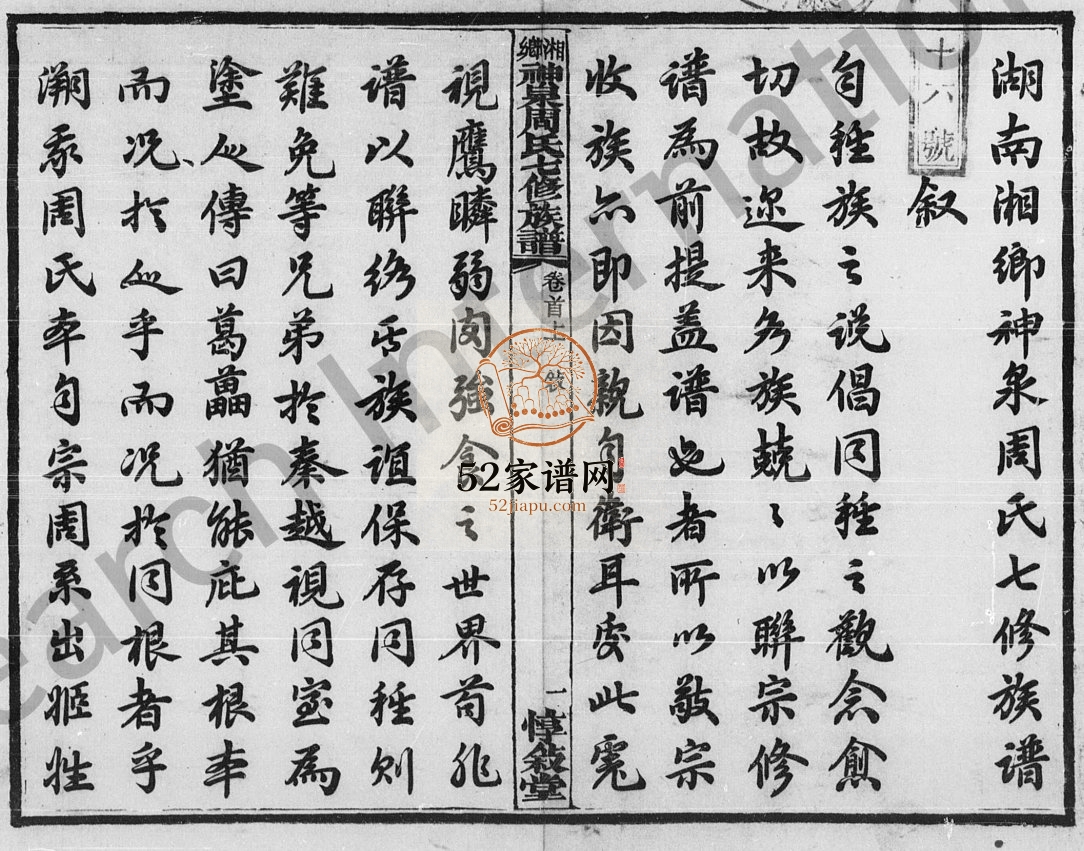 湖南湘鄉神泉周氏七修族譜
叙
自種族之説倡同種之觀念愈
切故迩来各族兢々以聯宗修
谱為前提盖谱也者所以敬宗
收族亦即因親自衛耳處此
湘鄉神泉周氏七修族譜
卷首上
敘
一
惇敍堂
視鷹瞵弱肉強食之世界苟非
谱以聯络氏族誼保存同種则
難免等兄弟於秦越視同室為
塗人傳曰葛藟猶能庇其根本
而况於人乎而况於同根者乎
溯我周氏本自宗周系出姬姓
十六號
52家谱网
52jiapu.com
earch Internation